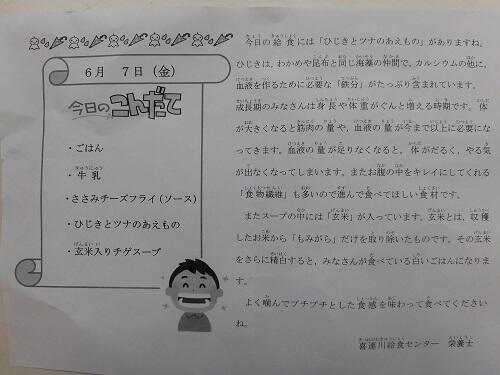 6月 7日(金)
今日のこんだて
・ごはん
・牛乳
・ささみチーズフライ(ソース)
・ひじきとツナのあえもの
・玄米入りチゲスープ
今日の給食には「ひじきとツナのあえもの」がありますね。
ひじきは、わかめや昆布と同じ海藻の仲間で。カルシウムの他に、
血液を作るために必要な「鉄分」がたっぷり含まれています。
成長期のみなさんは身長や体重がぐんと増える時期です。体
が大きくなると筋肉の量や、血液の量が今まで以上に必要にな
ってきます。血液の量が足りなくなると、体がだるく、やる気
が出なくなってしまいます。またお腹の中をキレイにしてくれる
「食物繊維」も多いので進んで食べてほしい食材です。
またスープの中には「玄米」が入っています。玄米とは、収穫
したお米から「もみがら」だけを取り除いたものです。その玄米
をさらに精白すると、みなさんが食べている白いごはんになりま
す。
よく噛んでプチプチとした食感を味わって食べてください
ね。
喜連川給食センター 栄養士